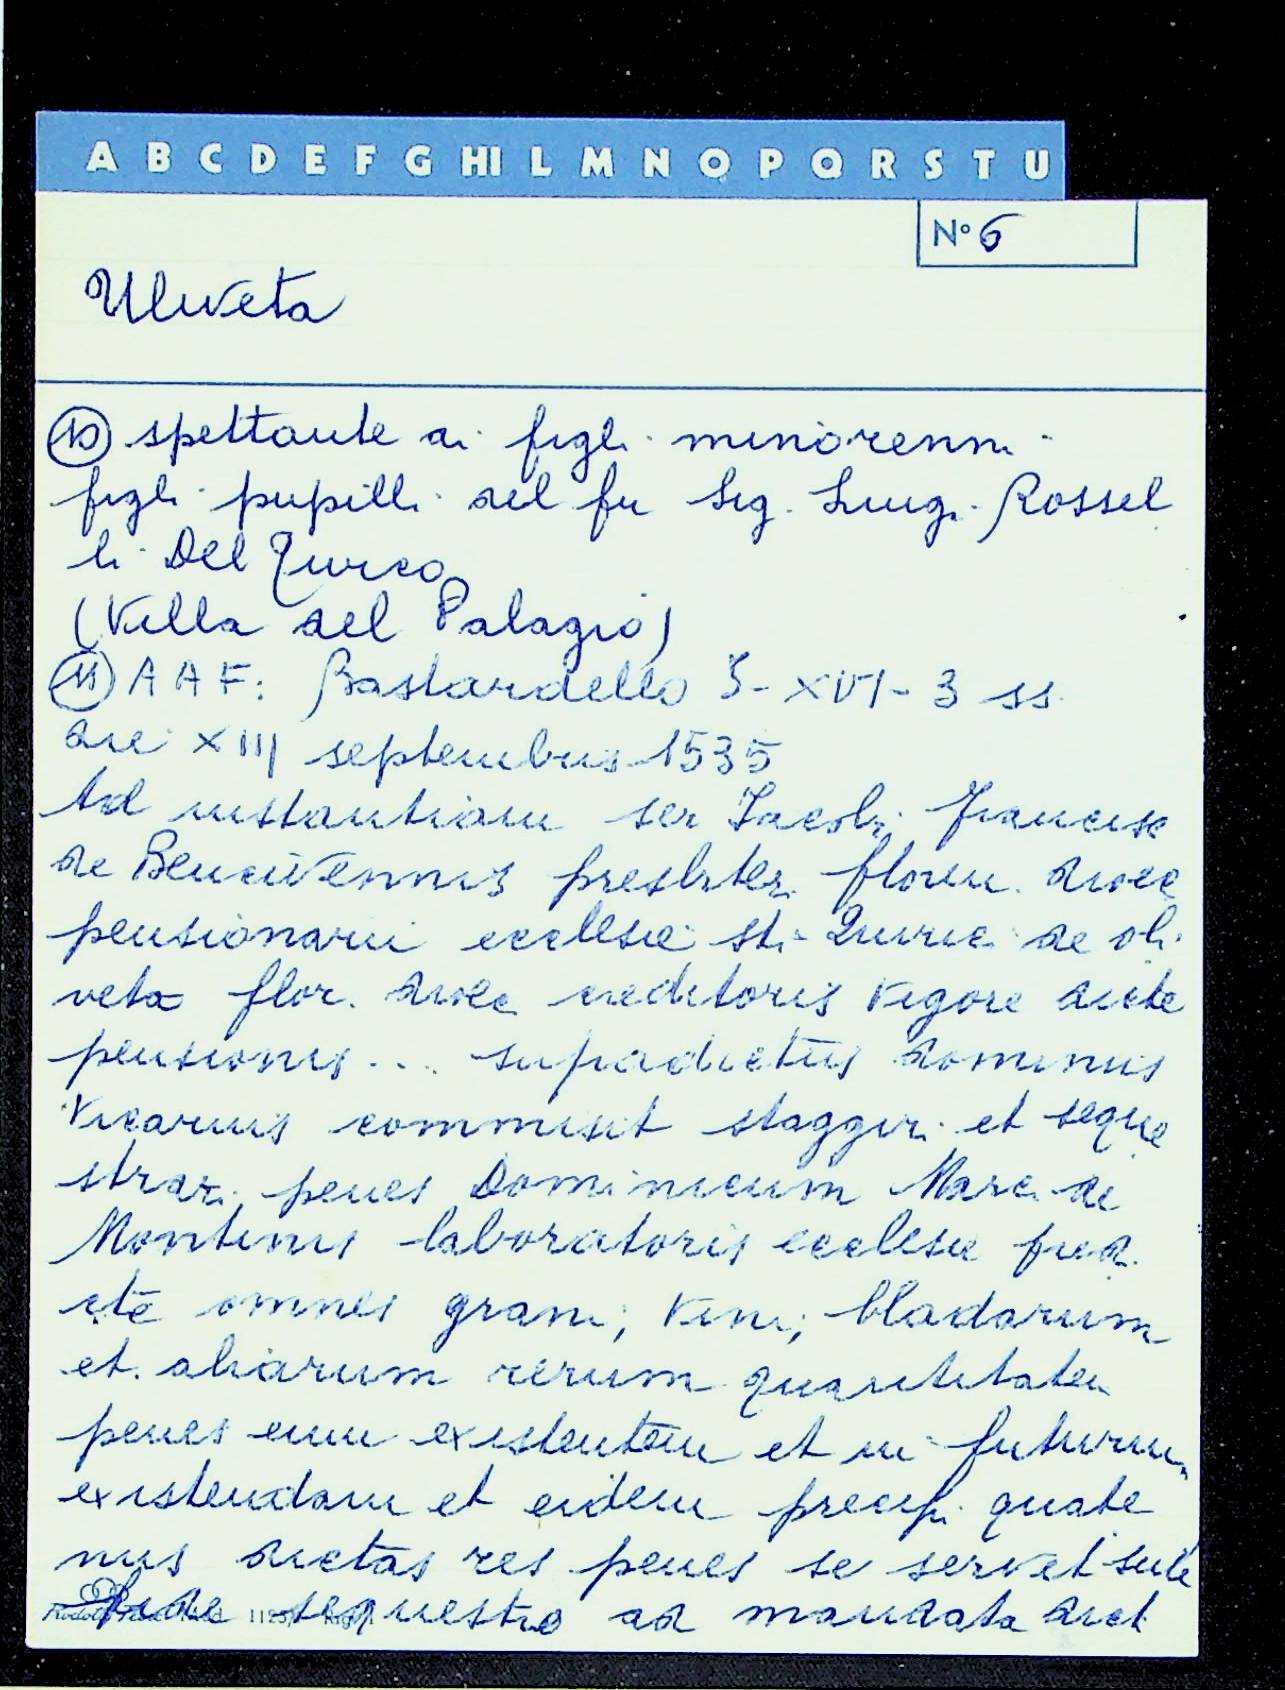 A B C D E F G HI L M N O P Q R S T U
N° 6
Uliveta
10 spettante ai figli minorenni
figli pupilli del fu Sig. Luigi Rossel
li Del Turco
(Villa del Palagio)
11 A A F: Bastardello S-XVI-3 ss.
die XIII septembris 1535
Ad instantiam ser Jacobi Francisc
de Bencivennis presbiter floren. dioec
pensionarii ecclesie sti Quirici de oli
veta flor. dioec creditoris vigore dicte
pensionis ... supradictus dominus
vicarius commisit staggiri et seque
strari penes Dominicum Marci de
Montinis laboratoris ecclesie pred.
cte omnes grani, vini, bladarum
et aliarum rerum quantitaten
penes eum existentem et in futurum
existendam et eidem precipi quate
nus dictas res penes se servet sub
sequestro ad mandata dict